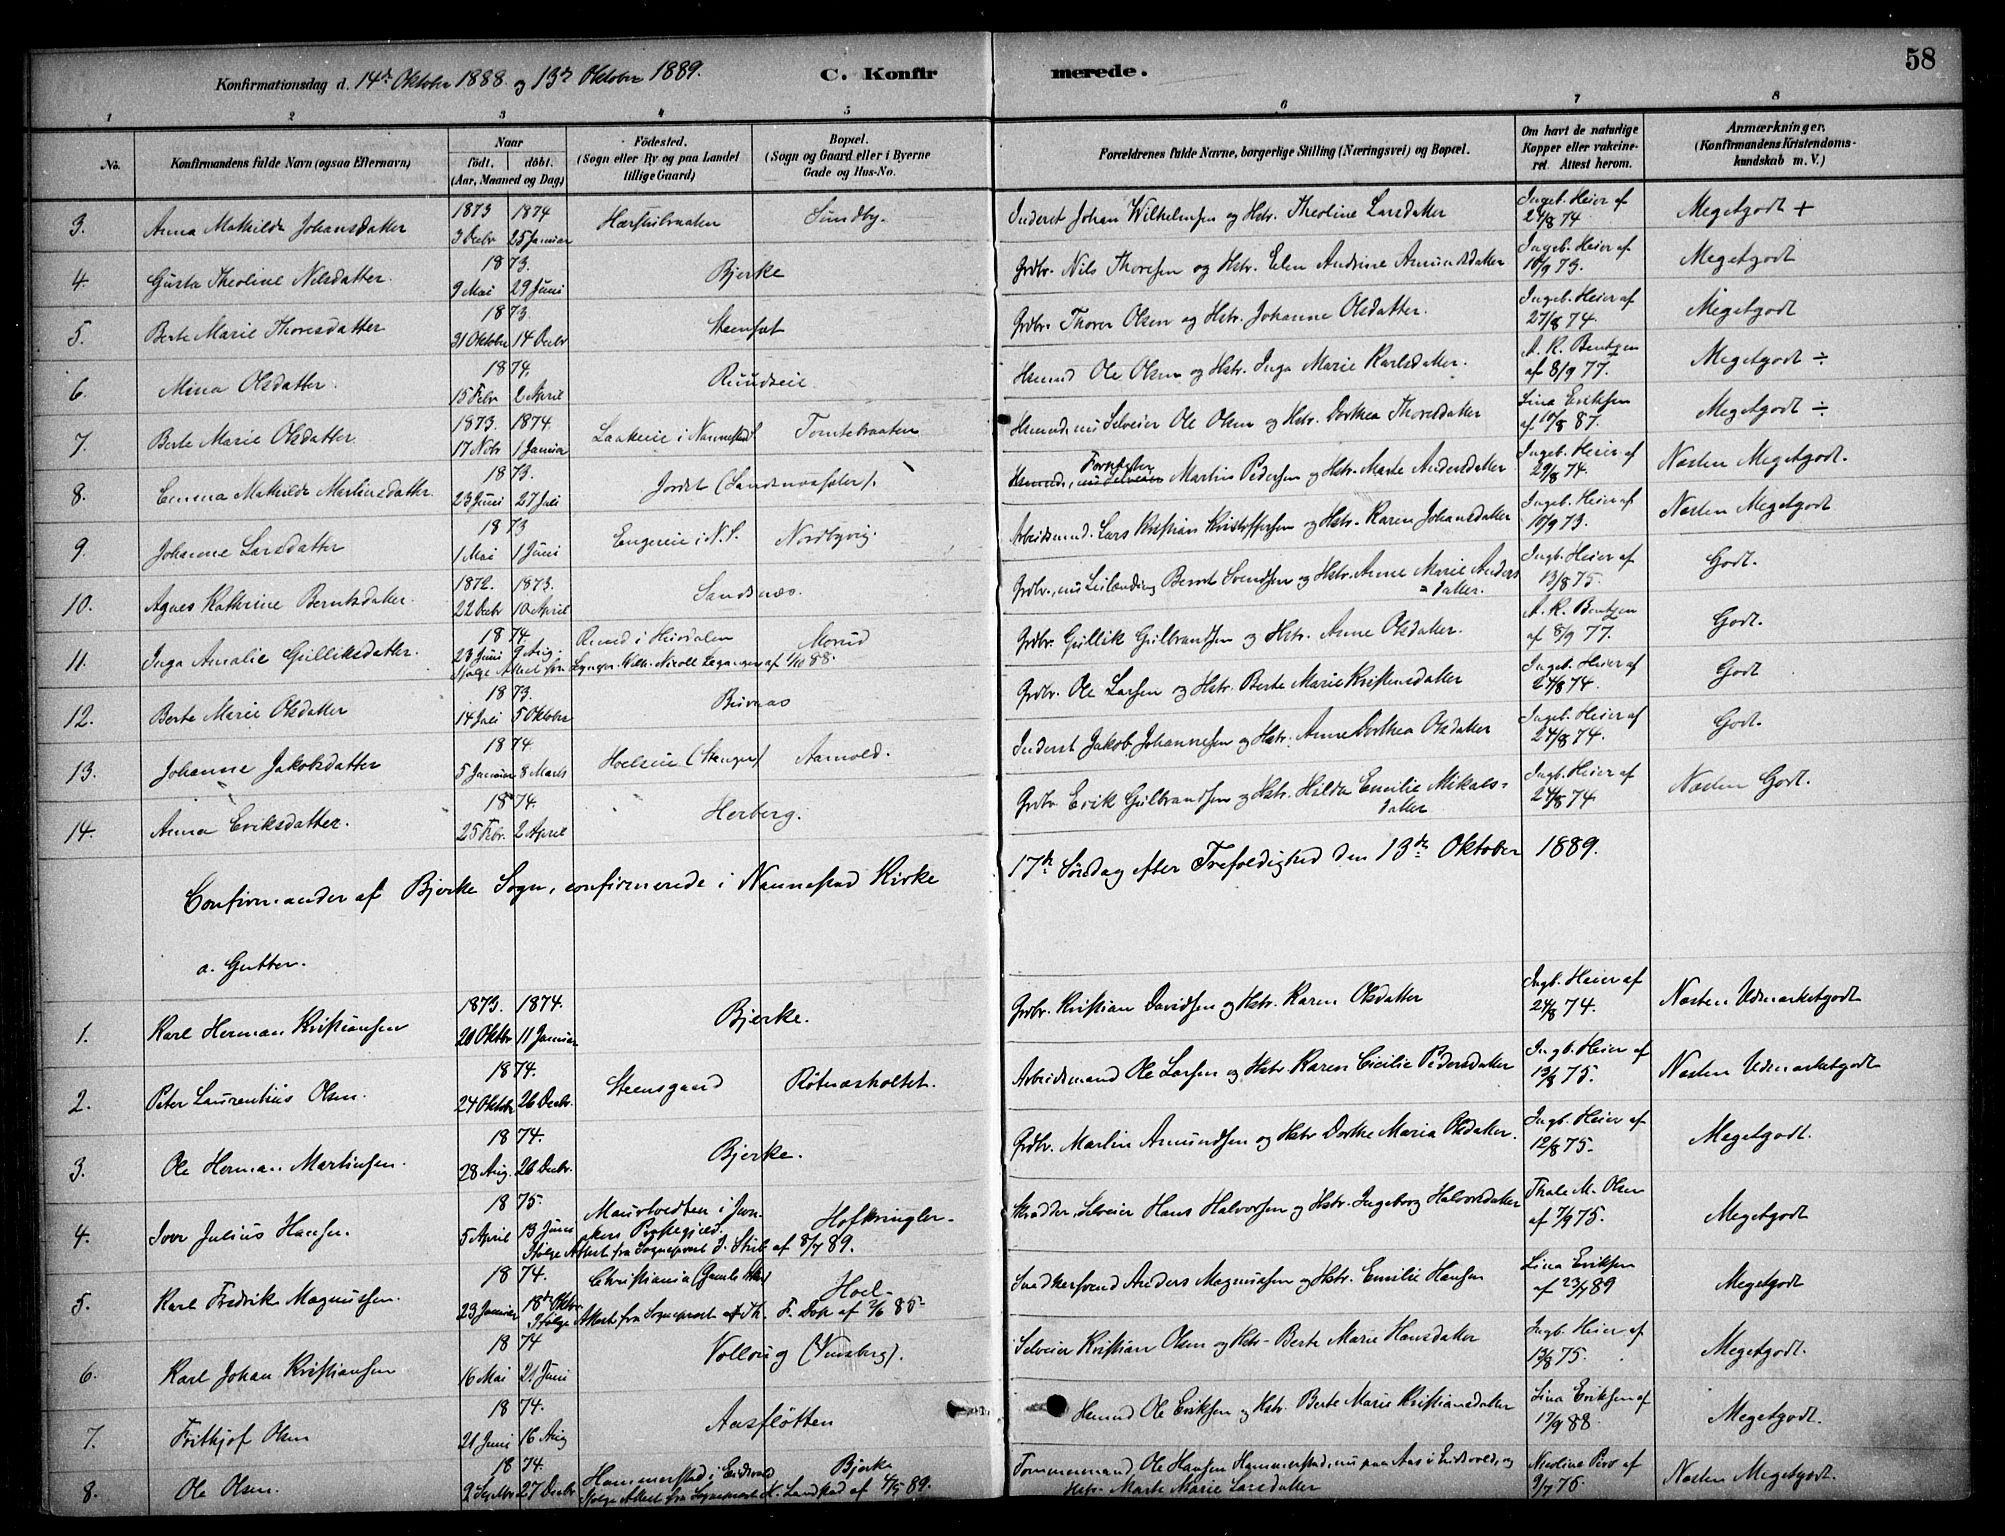 58
Konfirmationsdag d. 14de Oktober 1888 og 13de Oktober 1889.
C. Konfirmerede.
1 2 3 4 5 6 7 8
No.
Konfirmandens fulde Navn (ogsaa Efternavn)
Naar
födt. döbt.
(Aar, Maaned og Dag)
Födested.
(Sogn eller By og paa Landet
tillige Gaard)
Bopæl.
(Sogn og Gaard eller i Byerne
Gade og Hus-No.
Forældrenes fulde Navne, borgerlige Stilling (Næringsvei) og Bopæl.
Om havt de naturlige
Kopper eller vakcine-
ret. Attest herom.
Anmærkninger.
(Konfirmandens Kristendoms-
kundskab m. V.)
3. Anna Mathilde Johansdatter 1873 3 Decbr 1874 25 Januar Sundby. Inderst Johan Wilhelmsen og Hstr. Theoline Larsdatter Ingeb. Heier af 24/8 74. Megetgodt +
4. Gusta Theoline Nilsdatter. 1873. 9 Mai 29 Juni Bjerke Grdbr. Nils Thoresen og Hstr. Elen Andrine Amundsdatter Ingeb. Heier af 10/9 73. Megetgodt
5. Berte Marie Thoresdatter 1873. 31 Oktobr 14 Decbr Steensæt Grdbr. Thorer Olsen og Hstr. Johanne Olsdatter. Ingeb. Heier af 27/8 74. Megetgodt
6. Mina Olsdatter. 1874. 15 Febr 2 April Ruudseie. Hsmnd Ole Olsen og Hstr. Inga Marie Karlsdatter. A. K. Bentzen af 8/9 77. Megetgodt ÷
7. Berte Marie Olsdatter. 1873. 17 Nobr 1874 1 Januar Laakeeie i Nannestad Tomtebraaten Hsmnd, nu Selveier Ole Olsen og Hstr. Dorthea Thoresdatter Lina Eriksen af 10/8 87. Megetgodt ÷
8. Emma Mathilde Martinsdatter. 1873. 23 Juni 27 Juli Jordet Martin Pedersen og Hstr. Marte Andersdatter Ingeb. Heier af 29/8 74. Næsten Megetgodt.
9. Johanne Larsdatter 1873 1 Mai 1 Juni Engereie i N. S. Nordbyvig. Arbeidsmnd. Lars Kristian Kristoffersen og Hstr. Karen Johansdatter Ingeb. Heier af 10/9 73. Næsten Megetgodt.
10. Agnes Kathrine Berntsdatter. 1872. 22 Decbr 1873. 10 April Sandsnæs. Grdbr., nu Leilænding Bernt Svendsen og Hstr. Anne Marie Anders=
datter. Ingb. Heier af 13/8 75. Godt.
11. Inga Amalie Gulliksdatter. 1874. 23 Juni 9 Aug. Morud Grdbr. Gullik Gulbrandsen og Hstr. Anne Olsdatter. A. K. Bentzen af 8/9 77. Godt.
12. Berte Marie Olsdatter 1873. 14 Juli 5 Oktober Grdbr. Ole Larsen og Hstr. Berte Marie Kristensdatter Ingeb. Heier af 24/8 74. Godt
13. Johanne Jakobsdatter 1874. 5 Januar 8 Marts Hoelseie (Stanger) Aamold. Inderst Jakob Johannesen og Hstr. Anne Dorthea Olsdatter Ingeb. Heier af 24/8 74. Godt.
14. Anna Eriksdatter. 1874. 25 Febr. 2 April Herberg. Grdbr Erik Gulbrandsen og Hstr. Hilda Emilie Mikals-
datter Ingb. Heier af 24/8 74 Næsten Godt.
Confirmander af Bjerke Sogn, confirmerede i Nannestad Kirke 17de Søndag efter Trefoldighed den 13de Oktober 1889.
a. Gutter.
1. Karl Herman Kristiansen 1873. 20 Oktbr 1874. 11 Januar Bjerke. Grdbr. Kristian Davidsen og Hstr. Karen Olsdatter Ingb. Heier af 24/8 74. Næsten Udmærketgodt
2. Peter Laurentius Olsen. 1874. 24 Oktobr 26 Decbr. Steensgaard Røtnæsholtet. Arbeidsmand Ole Larsen og Hstr. Karen Cecilie Pedersdatter Ingb. Heier af 13/8 75. Næsten Udmærketgodt
3. Ole Herman Martinsen. 1874. 28 Aug. 26 Decbr. Bjerke. Grdbr. Martin Amundsen og Hstr. Dorthe Maria Olsdatter. Ingb. Heier af 12/8 75. Megetgodt.
4. Iver Julius Hansen. 1875. 5 April 13 Juni i Jevnakers Præstegjeld. Hofkringler-
Ifølge Attest fra Sogneprest J. Strib af 8/7 89. Skrædder, Selveier Hans Halvorsen og Hstr. Ingeborg Halvorsdatter Thale M. Olsen af 7/9 75. Megetgodt
5. Karl Fredrik Magnussen. 1874. 23 Januar 18de Oktbr Christiania (Gamle Aker) Hoel-
Ifølge Attest fra Sogneprest Th. F. Dop af 2/6 85- Snedkersvend Anders Magnussen og Hstr. Emilie Hansen Lina Eriksen af 23/7 89 Megetgodt
6. Karl Johan Kristiansen 1874 16 Mai 21 Juni Vollaug Selveier Kristian Olsen og Hstr- Berte Marie Hansdatter Ingb. Heier af 13/8 75. Megetgodt.
7. Frithjof Olsen 1874. 21 Juni 16 Aug Aasfløtten Hsmnd Ole Eriksen og Hstr. Berte Marie Kristiansdatter Lina Eriksen af 17/9 88. Megetgodt.
8. Ole Olsen. 1874. 2 Septbr 27 Decbr Hammerstad i Eidsvold Bjerke
Ifølge Attest fra Sogneprest N. Landstad af 4/5 89. Tømmermand Ole Hansen Hammerstad, nu paa Aas i Eidsvold, og
Hstr. Marte Marie Larsdatter Nicoline Piro af 9/7 76. Næsten Megetgodt.